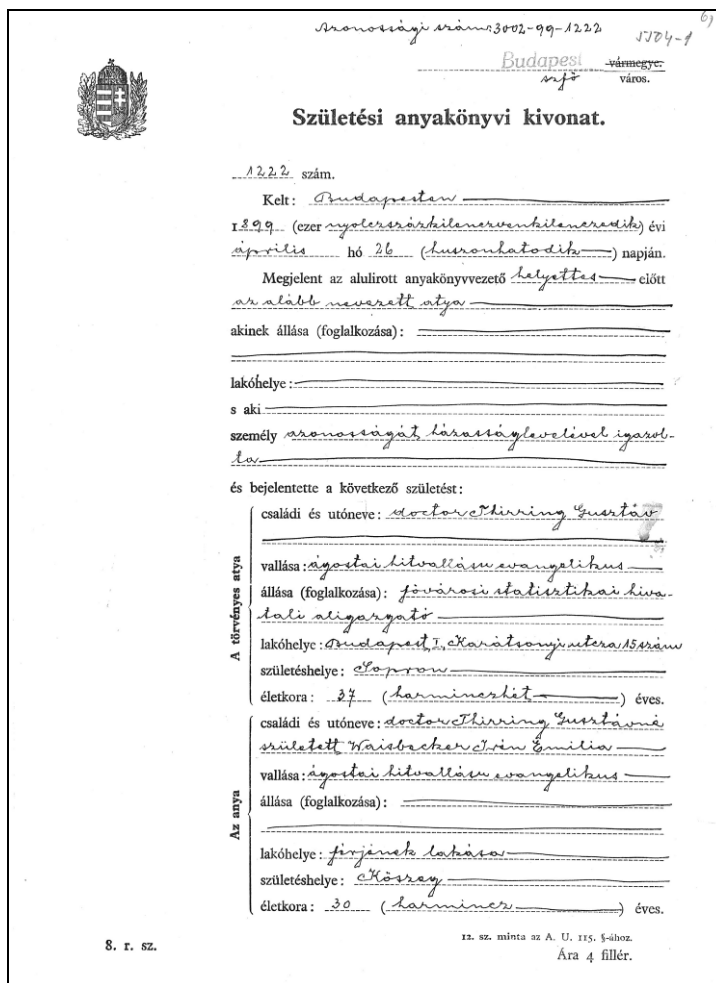 6)
Azonossági szám: 3002-99-1222
5504-1
Budapest vármegye.
szfő város.
Születési anyakönyvi kivonat.
1222 szám.
Kelt: Budapesten
1899 (ezer nyolczszázkilenczvenkilenczedik) évi
április hó 26 (huszonhatodik) napján.
Megjelent az alulirott anyakönyvvezető helyettes előtt
az alább nevezett atya
akinek állása (foglalkozása):
lakóhelye:
s aki
személy azonosságát házasságlevelével igazol-
ta
és bejelentette a következő születést:
A törvényes atya
családi és utóneve: doctor Thirring Gusztáv
vallása: ágostai hitvallásu evangelikus
állása (foglalkozása): fővárosi statisztikai hiva-
tali aligazgató
lakóhelye: Budapest, I, Karátsonyi utcza 15 szám
születéshelye: Sopron
életkora: 37 (harminczhét) éves.
Az anya
családi és utóneve: doctor Thirring Gusztávné
született Waisbecker Irén Emilia
vallása: ágostai hitvallásu evangelikus
állása (foglalkozása):
lakóhelye: férjének lakása
születéshelye: Kőszeg
életkora: 30 (harmincz) éves.
8. r. sz.
12. sz. minta az A. U. 115. §-ához.
Ára 4 fillér.